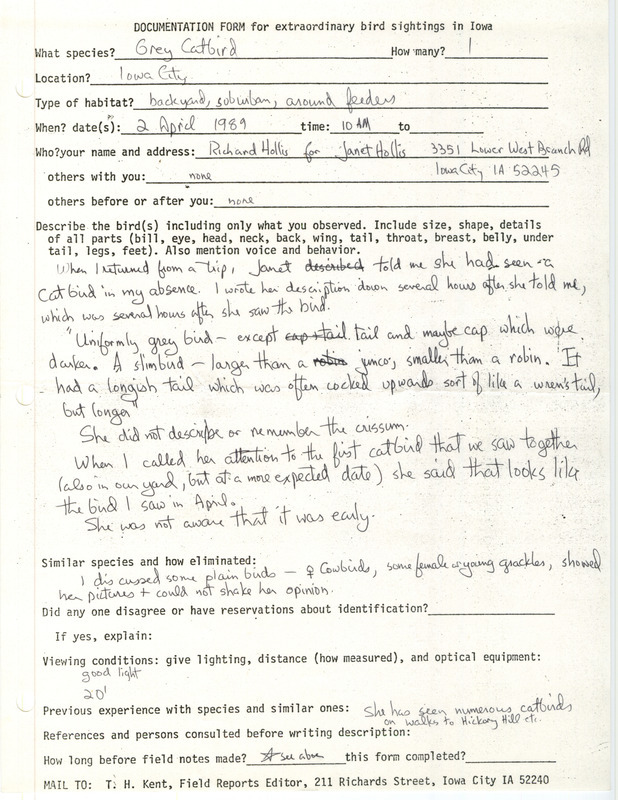 DOCUMENTATION FORM for extraordinary bird sightings in Iowa
What species? Grey Catbird How many? 1
Location? Iowa City
Type of habitat? backyard, suburban, around feeders
When? date(s): 2 April 1989 time: 10 AM to
Who?your name and address: Richard Hollis for Janet Hollis 3351 Lower West Branch Rd
Iowa City IA 52245
others with you: none
others before or after you: none
Describe the bird(s) including only what you observed. Include size, shape, details
of all parts (bill, eye, head, neck, back, wing, tail, throat, breast, belly, under
tail, legs, feet). Also mention voice and behavior.
When I returned from a trip, Janet described told me she had seen a
Catbird in my absence. I wrote her description down several hours after she told me,
which was several hours after she saw the bird.
"Uniformly grey bird – except cap + tail tail and maybe cap which were
darker. A slim bird – larger than a robin junco, smaller than a robin. "It
had a longish tail which was often cocked upwards sort of like a wren's tail,
but longer"
She did not describe or remember the crissum.
When I called her attention to the first catbird that we saw together
(also in our yard, but at a more expected date) she said that looks like
the bird I saw in April.
She was not aware that it was early.
Similar species and how eliminated:
I discussed some plain birds – ♀ Cowbirds, some female or young grackles, showed
her pictures + could not shake her opinion.
Did any one disagree or have reservations about identification?
If yes, explain:
Viewing conditions: give lighting, distance (how measured), and optical equipment:
good light
20'
Previous experience with species and similar ones: She has seen numerous catbirds
on walks to Hickory Hill etc.
References and persons consulted before writing description:
How long before field notes made? * see above this form completed?
MAIL TO: T. H. Kent, Field Reports Editor, 211 Richards Street, Iowa City IA 52240